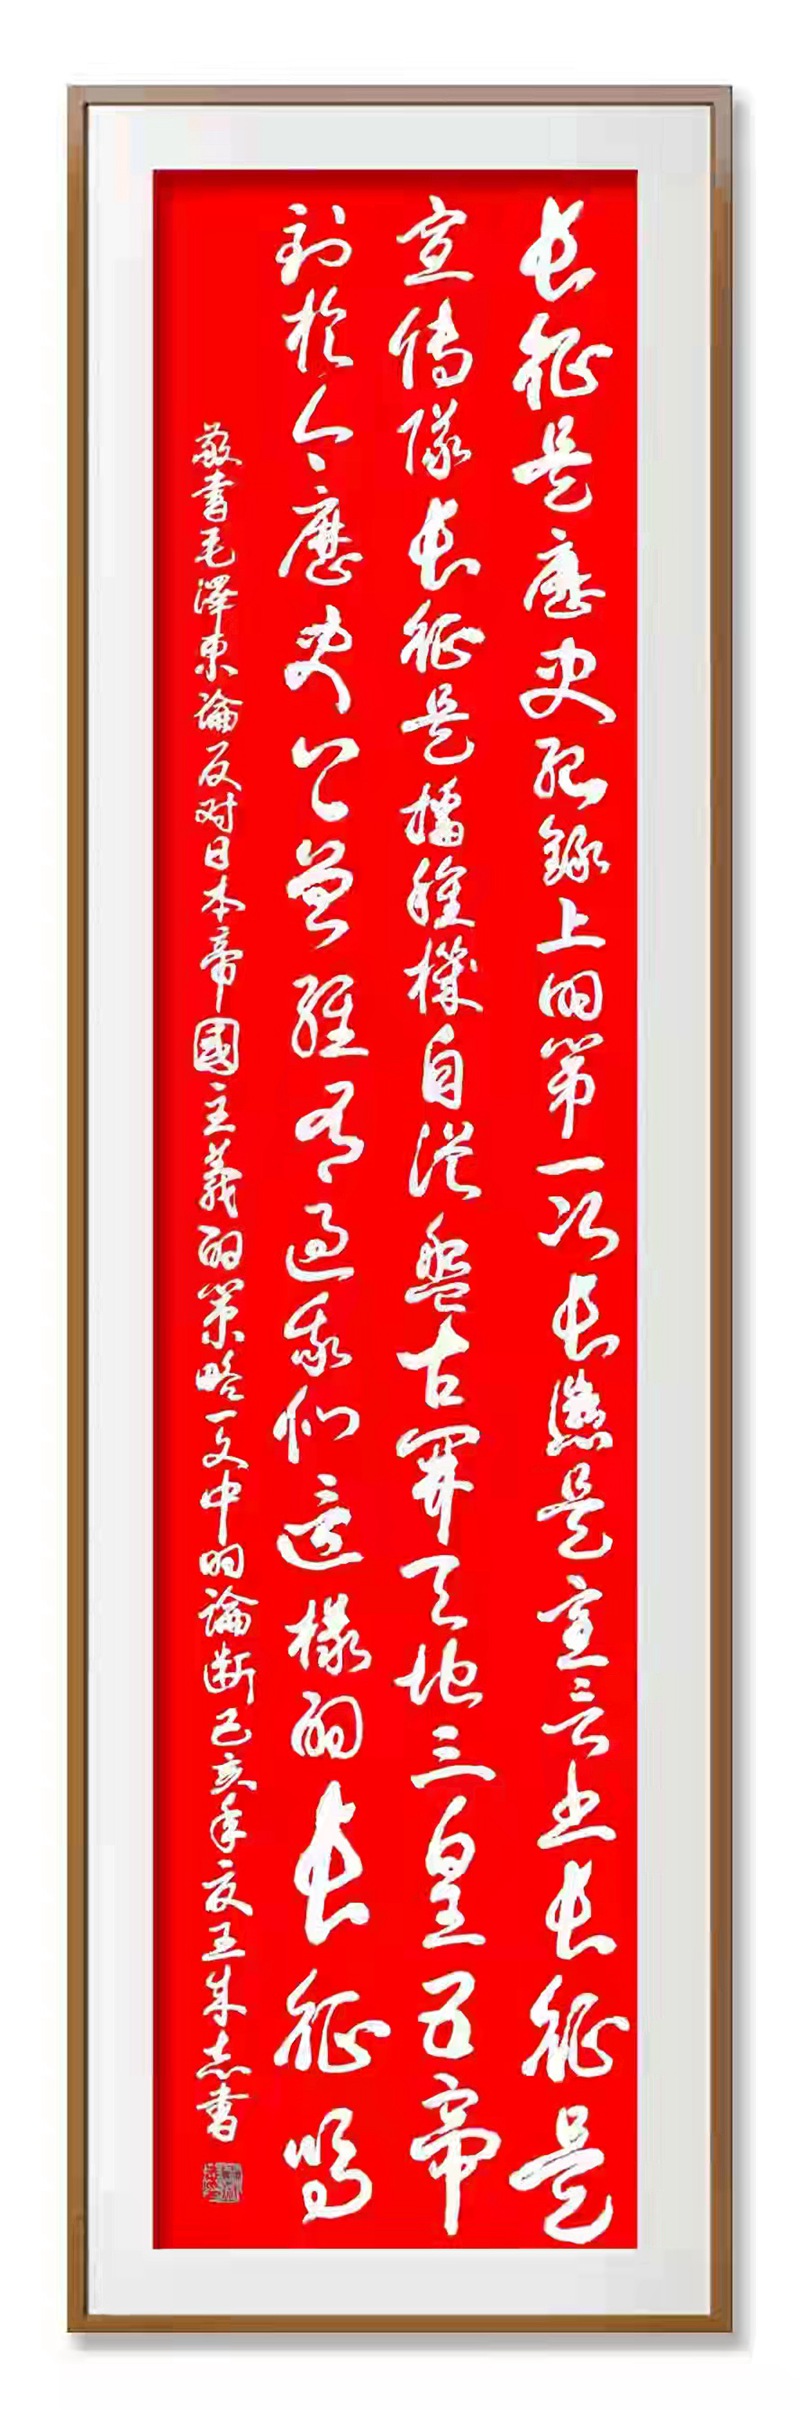 长征是歷史紀錄上的第一次长徵是宣言书长征是
宣傳隊长征是播種機自從盤古開天地三皇五帝
到於今歷史上曾經有過我们這樣的长征嗎
敬書毛澤東論反对日本帝國主義的策略一文中的論断己亥年夏王朱志書